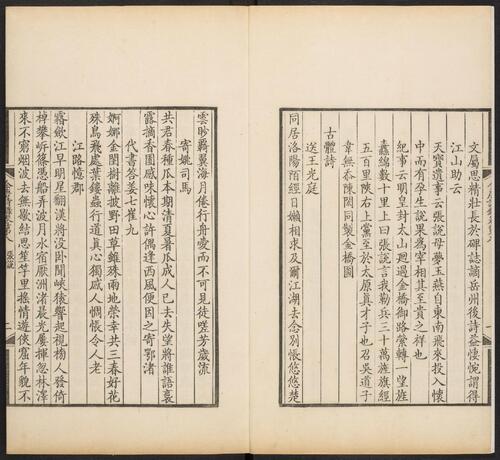 文屬思精壯長於碑誌謫岳州後詩益悽惋謂得
江山助云
天寶遺事云張說母夢玉燕自東南飛來投入懷
中而有孕生說果為宰相其至貴之祥也
紀事云明皇封太山廻過金橋御路縈轉一望旌
纛綿數十里上曰張說言我勒兵三十萬旌旗經
五百里陝右上黨至於太原真才子也召吳道子
韋無忝陳閎同製金橋圖
古體詩
送王光庭
同居洛陽陌經日嬾相求及爾江湖去念別悵悠悠楚
雲眇羇翼海月倦行舟愛而不可見徒嗟芳歲流
寄姚司馬
共君春種瓜本期清夏暑瓜成人已去失望將誰語裛
露摘香園感味懷心許偶逢西風便因之寄鄂渚
代書答姜七崔九
婀娜金閨樹離披野田草雖殊兩地榮幸共三春好花
殊鳥飛處葉鏤蟲行道真心獨感人惆悵令人老
江路憶郡
霧斂江早明星翻漢將沒臥聞峽猿響起視榜人發倚
棹攀岍篠憑船弄波月水宿厭洲渚晨光屢揮忽林澤
來不窮烟波去無歇結思笙竽里搖情遊俠窟年貌不
張說